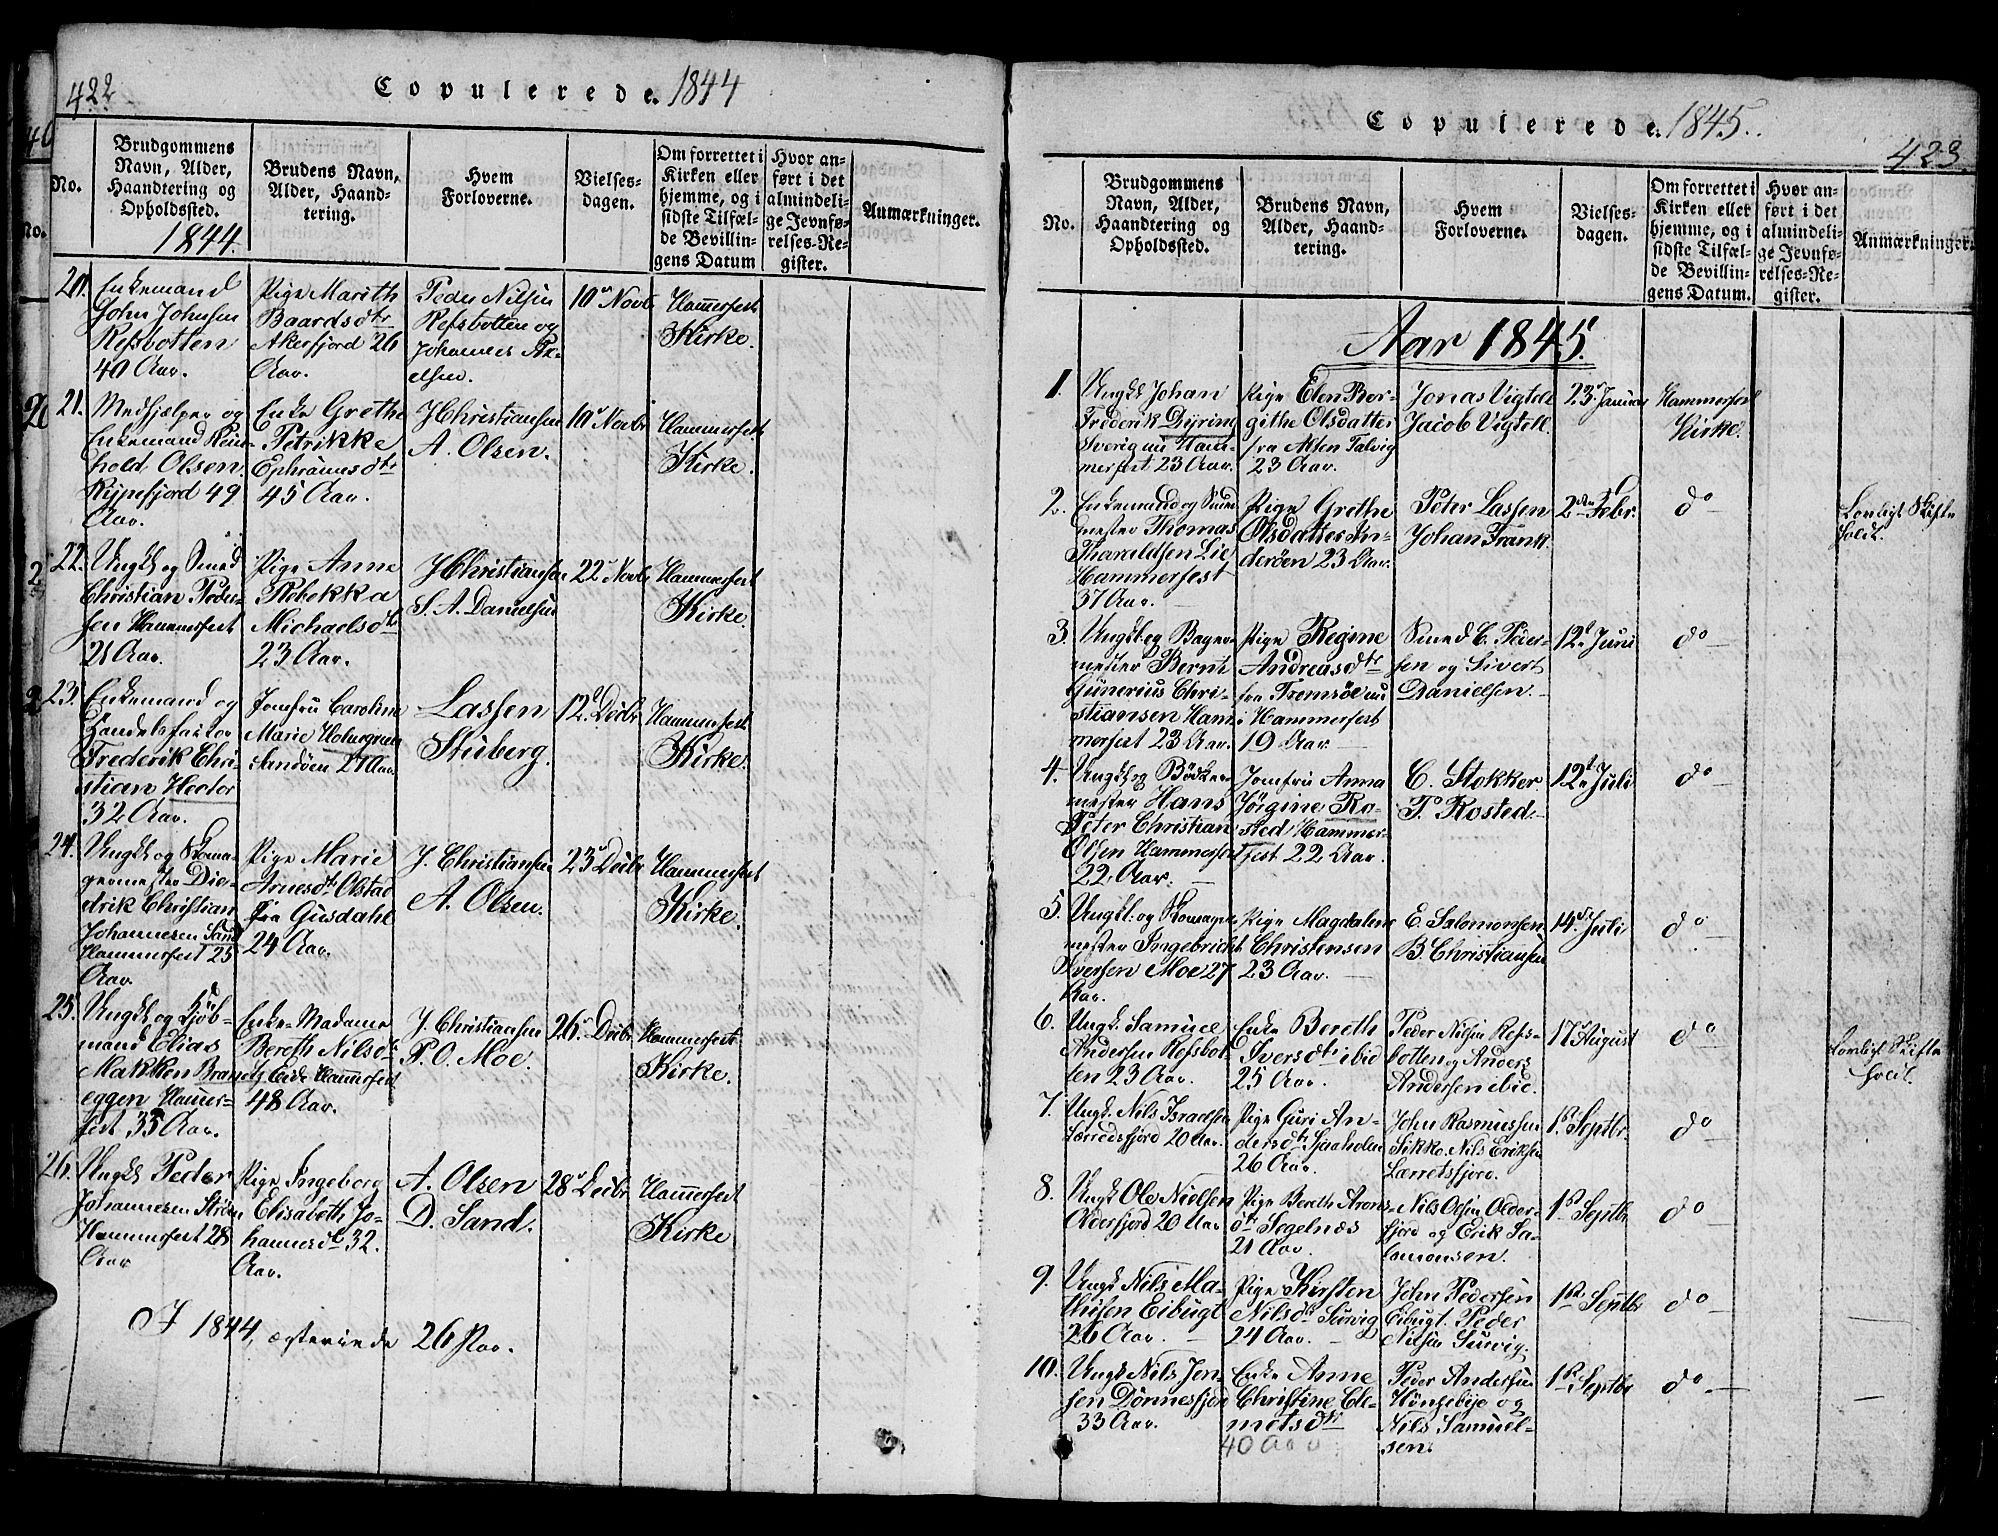 422
Copulerede. 1844
No.
Brudgommens
Navn, Alder,
Haandtering og
Opholdssted.
1844.
Brudens Navn,
Alder, Haand-
tering.
Hvem
Forloverne.
Vielses-
dagen.
Om forrettet i
Kirken eller
hjemme, og i
sidste Tilfæl-
de Bevillin-
gens Datum
Hvor an-
ført i det
almindeli-
ge Jevnfø-
relses-Re-
gister.
Anmærkninger.
20.
Enkemand
John Johnsen
Refsbotten
40 Aar.
Pige Marith
Baardsdtr
Akerfjord 26
Aar.
Peder Nilsen
Refsbotten og
Johannes
10 Novbr
Hammerfest
Kirke.
21.
Medhjælper og
Enkemand Rein-
hold Olsen
Rypefjord 49
Aar.
Enke Grethe
Petrikke
Ephraimsdtr
45 Aar.
J Christiansen
A. Olsen.
10 Novbr
Hammerfest
Kirke.
22.
Ungk og Smed
Christian Peder-
sen Hammerfest
21 Aar.
Pige Anne
Rebekka
Michaelsdtr
23 Aar.
J Christiansen
S. A. Danielsen
22 Novbr
Hammerfest
Kirke.
23.
Enkemand og
Handelsfaktor
Frederik Chri-
stian Hector
32 Aar.
Jomfru Caroline
Marie Holmgren
27 Aar
Lassen
Stuberg.
12 Decbr
Hammerfest
Kirke.
24.
Ungk og Skoma-
germester Die-
drik Christian
Johannesen Sand
Hammerfest 25
Aar.
Pige Marie
Arnesdtr Olstad
fra Gusdahl
24 Aar.
J. Christiansen
A. Olsen.
23 Decbr
Hammerfest
Kirke.
25.
Ungk og Kjøb-
mand Elias
Makken Brand
eggen Hammer-
fest 35 Aar.
Enke Madame
Bereth Nilsdtr
Eide Hammerfest
48 Aar.
J. Christiansen
P. O. Moe.
26 Decbr
Hammerfest
Kirke.
26.
Ungk Peder
Johannesen
Hammerfest 28
Aar
Pige Ingeborg
Elisabeth Jo-
hannesdtr 32.
Aar.
A. Olsen
D. Sand.
28 Decbr
Hammerfest
Kirke
I 1844, ægteviede 26 Par.
Copulerede. 1845.
423
No.
Brudgommens
Navn, Alder,
Haandtering og
Opholdssted.
Brudens Navn,
Alder, Haand-
tering.
Hvem
Forloverne.
Vielses-
dagen.
Om forrettet i
Kirken eller
hjemme, og i
sidste Tilfæl-
de Bevillin-
gens Datum.
Hvor an-
ført i det
almindeli-
ge Jevnfø-
relses-Re-
gister.
Anmærkninger.
Aar 1845.
1.
Ungk Johan
Frederik Dyring
Sverig nu Ham-
merfest 23 Aar.
Pige Elen Mar-
githe Olsdatter
fra Alten Talvig
23 Aar.
Jonas Vigtell
Jacob Vigtell.
23 Januar
Hammerfest
Kirke.
2.
Enkemand og Smed
mester Thomas
Tharaldsen Lie
Hammerfest
37 Aar.
Pige Grethe
Olsdatter In-
derøen 23 Aar.
Peter Lassen
Johan Frank.
2den Febr.
do
Lovligt Skifte
holdt.
3.
Ungk og Bager-
mester Bernt
Gunerius Chri-
stiansen Ham
merfest 23 Aar.
Pige Regine
Andreasdtr
fra Tromsøe nu
i Hammerfest
19 Aar
Smed C. Peder-
sen og Sivert
Danielsen
12 Juni
do
4.
Ungk og Bødker-
mester Hans
Peter Christian
Olsen Hammerfest
22 Aar.
Jomfru Anna
Jørgine Ro-
sted Hammer-
fest 22 Aar.
C. Stokker
P. Rosted.
12 Juli
do
5.
Ungk. og Skomager
mester Ingebricht
Iversen Moe 27
Aar.
Pige Magdalene
Christensen
23 Aar.
E. Salomonsen
B. Christiansen
14 Juli
do
6.
Ungk. Samuel
Andersen Refsbot-
ten 23 Aar.
Enke Bereth
Iversdtr ibid
25 Aar.
Peder Nilsen Refs-
botten og Anders
Andersen ibid.
17 August
do
Lovligt Skifte
holdt.
7.
Ungk. Nils Israelsen
Lærredsfjord 20 Aar.
Pige Guri An-
dersdtr Saaholm
26 Aar.
John Rasmussen
Sikko. Nils Eriksen
Lærretsfjord.
1 Septbr.
do
8.
Ungk Ole Nielsen
Olderfjord 20 Aar
Pige Bereth Arons-
dtr Segelnæs
21 Aar.
Nils Olsen Older-
fjord og Erik Sa-
lamonsen.
1 Septbr
do
9.
Ungk Nils Ma-
thisen Eibugt
26 Aar.
Pige Kirsten
Nilsdtr Survig
24 Aar.
John Pedersen
Eibugt. Peder
Nielsen Survig.
1 Septbr
do
10.
Ungk Nils Jen-
sen Dønnesfjord
33 Aar.
Enke Anne
Christine Cle-
metsdtr
40 Aar
Peder Andersen
Hønsebye og
Nils Samuel-
sen.
1 Septbr
do